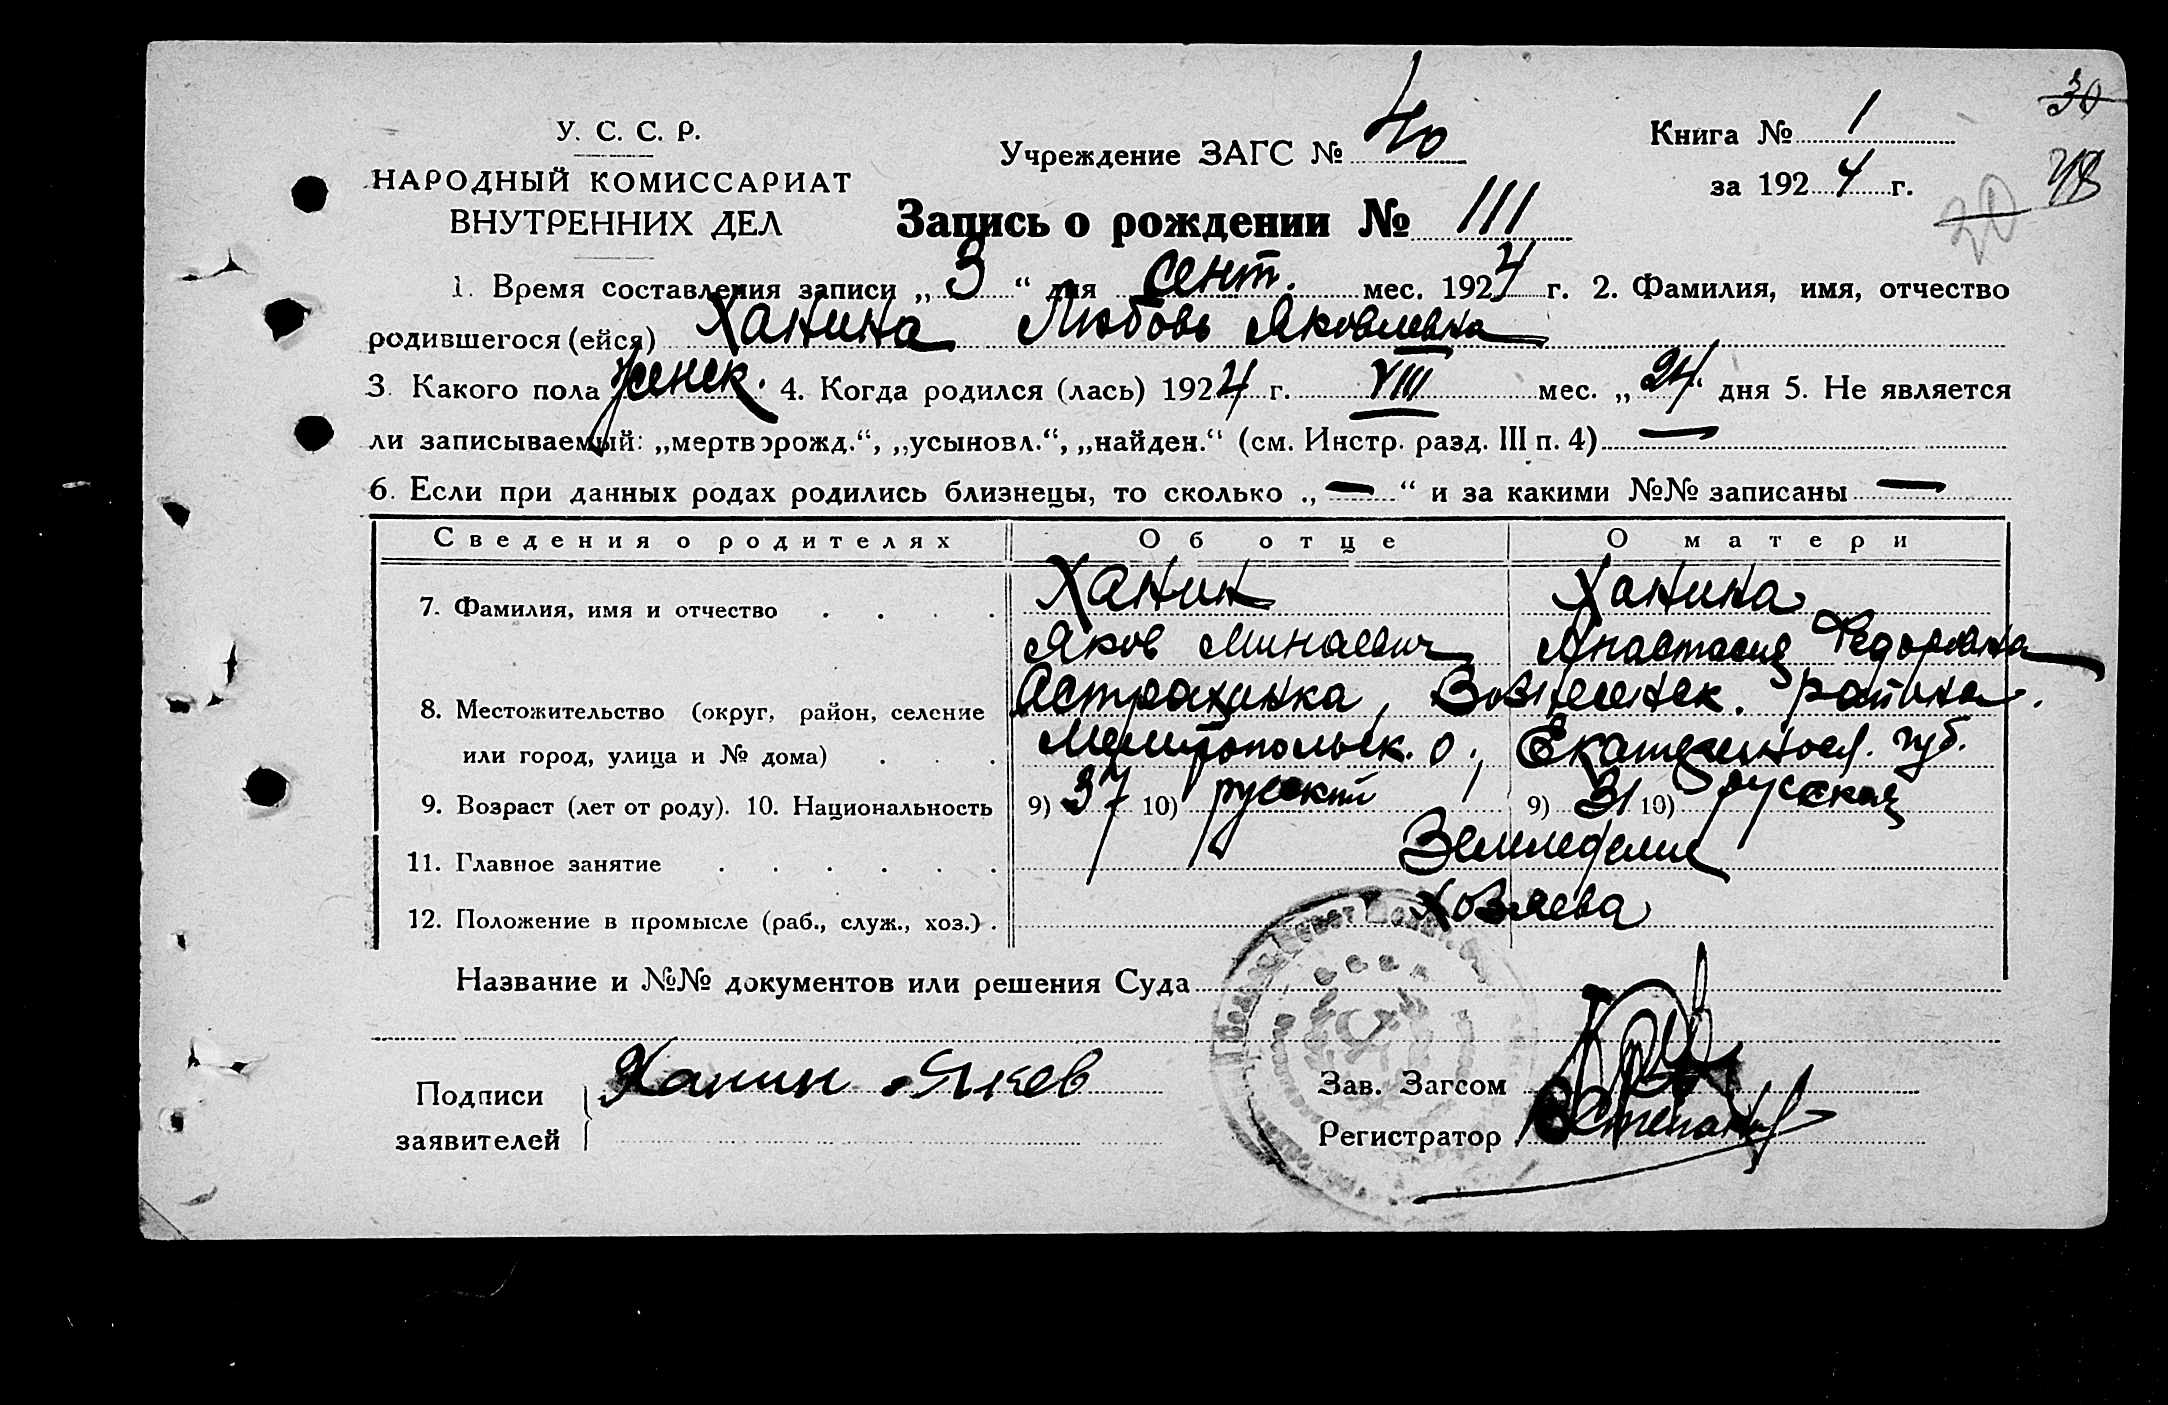 30
У. С. С. Р.
НАРОДНЫЙ КОМИССАРИАТ
ВНУТРЕННИХ ДЕЛ
Учреждение ЗАГС № 40
Книга № 1
за 1924 г.
20
Запись о рождении № 111
1. Время составления записи „ 3 “ дня сент. мес. 1924 г. 2. Фамилия, имя, отчество
родившегося (ейся) Ханина Любовь Яковлевна
3. Какого пола женск. 4. Когда родился (лась) 1924 г. VIII мес. „ 24 “ дня 5. Не является
ли записываемый: „мертворожд.“, „усыновл.“, „найден.“ (см. Инстр. разд. III п. 4) —
6. Если при данных родах родились близнецы, то сколько „ — “ и за какими №№ записаны —
Сведения о родителях Об отце О матери
7. Фамилия, имя и отчество . . . . Ханин Ханина
Яков Минаевич Анастасия Федоровна
8. Местожительство (округ, район, селение Астраханка, Вознесенск. района.
или город, улица и № дома) . . . Мелитопольск. о, Екатериносл. губ.
9. Возраст (лет от роду). 10. Национальность 9) 37 10) русский 9) 31 10) русская
11. Главное занятие . . . . . . Земледелие
12. Положение в промысле (раб., служ., хоз.) . Хозяева
Название и №№ документов или решения Суда
Подписи Ханин Яков
заявителей
Зав. Загсом
Регистратор